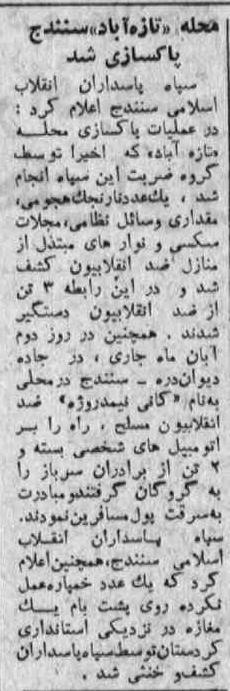 محله «تازه‌آباد» سنندج
پاکسازی شد
سپاه پاسداران انقلاب
اسلامی سنندج اعلام کرد :
در عملیات پاکسازی محلــه
«تازه آباد» که اخیرا توسط
گروه ضربت این سپاه انجام
شد ، یک‌عددنارنجک‌هجومی،
مقداری وسائل نظامی،مجلات
سکسی و نوار های مبتذل از
منازل ضد انقلابیون کشف
شد و در این رابطه ۳ تن
از ضد انقلابیون دستگیر
شدند . همچنین در روز دوم
آبان ماه جاری ، در جاده
دیوان‌دره ـ سنندج درمحلی
به‌نام «کانی نیمدروژه» ضد
انقلابیون مسلح ، راه را بــر
اتومبیل های شخصی بسته و
۲ تن از برادران سرباز را
به گروگان گرفتندومبادرت
به‌سرقت پول‌مسافرین‌نمودند.
سپاه پــاسداران انقلاب
اسلامی سنندج،همچنین‌اعلام
کرد که یک عدد خمپاره‌عمل
نکرده روی پشت بام یــك
مغازه در نزدیکی استانداری
کردستان‌توسط‌سپاه‌پاسداران
کشف‌و خنثی شد .